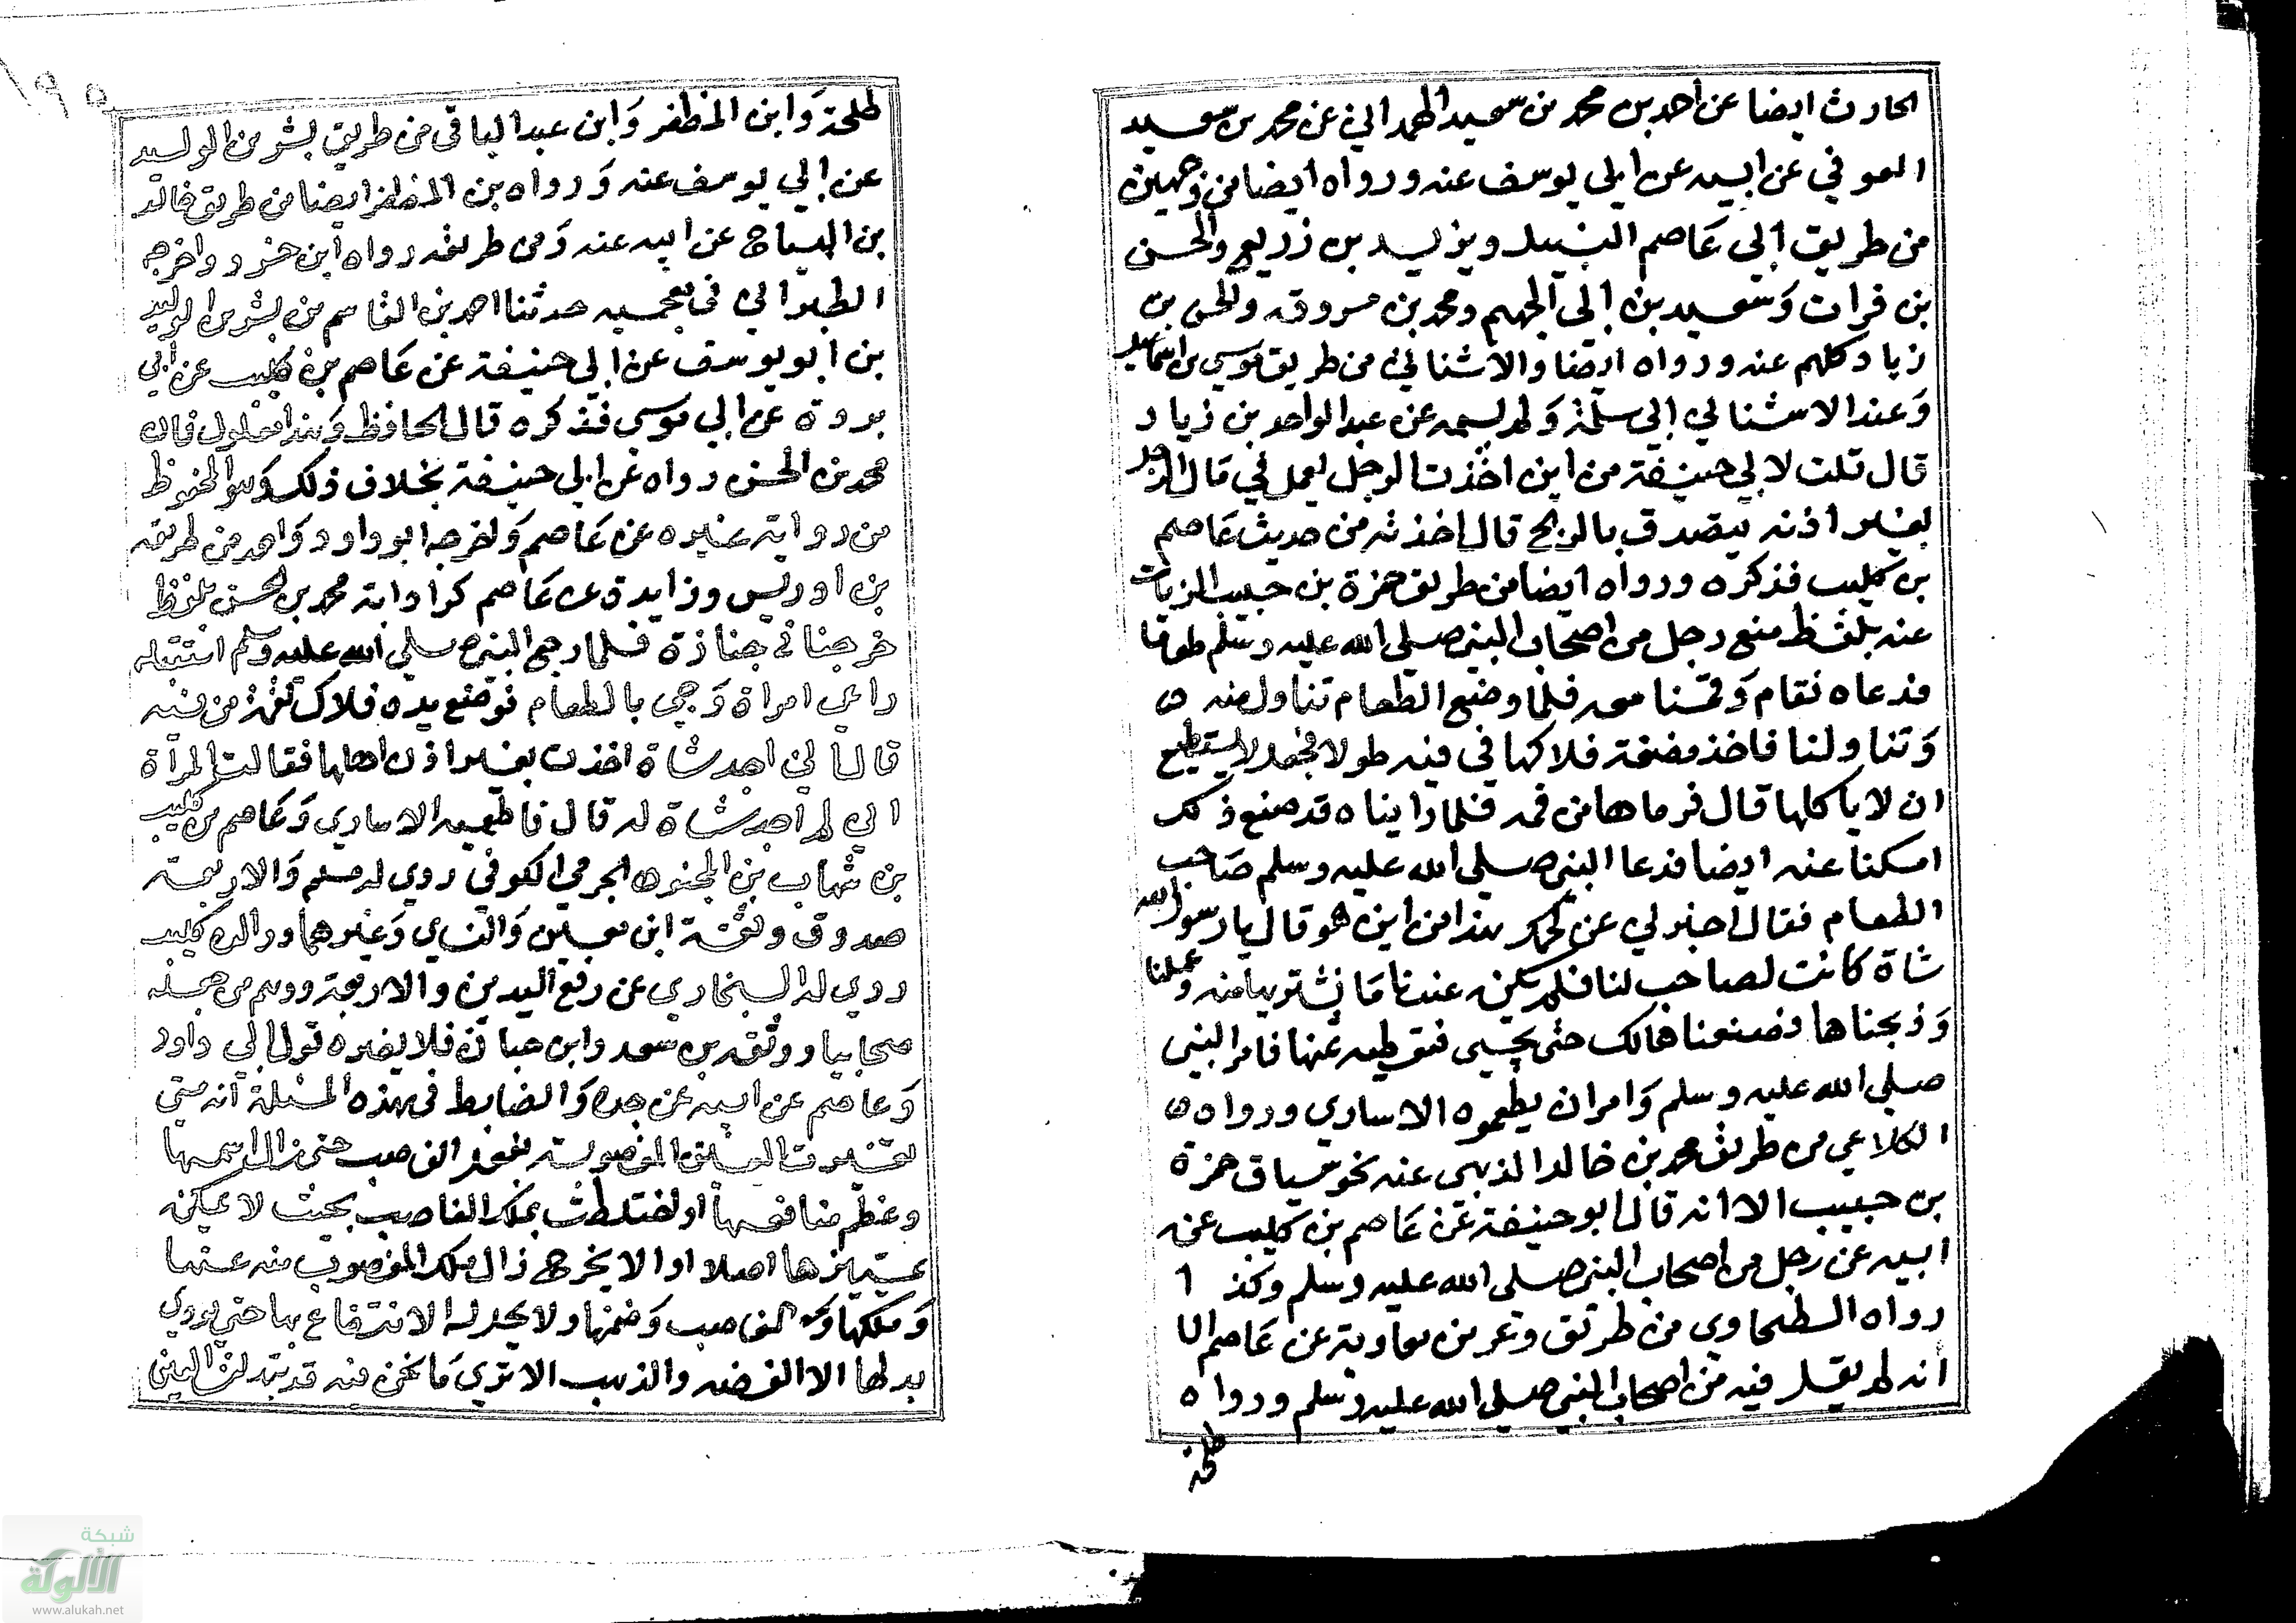 الحارث ايضا عن احمد بن محمد بن سعيد الهمداني عن محمد بن سعيد
العوفي عن ابيه عن ابي يوسف عنه ورواه ايضا من وجهين
من طريق ابي عاصم النبيل ويزيد بن زريع والحسن
بن فرات وسعيد بن ابي الجهم ومحمد بن مسروق والحسن بن
زياد كلهم عنه ورواه ايضا والاشناني من طريق موسي بن اسماعيل
وعند الاشناني ابي سلمة ولم يسمه عن عبد الواحد بن زياد
قال قلت لابي حنيفة من اين اخذت الرجل يعمل في مال الرجل
بغير اذنه يتصدق بالربح قال اخذته من حديث عاصم
بن كليب فذكره ورواه ايضا من طريق حمزة بن حبيب الزيات
عنه بلفظ صنع رجل من اصحاب النبي صلي الله عليه وسلم طعاما
فدعاه فقام وقمنا معه فلما وضع الطعام تناول منه
وتناولنا فاخذ مضغة فلاكها في فيه طولا فجعل لا يستطيع
ان لا ياكلها قال فرماها من فمه فلما رايناه قد صنع ذلك
امسكنا عنه ايضا فدعا النبي صلي الله عليه وسلم صاحب
الطعام فقال اخبرني عن لحمك هذا من اين هو قال يا رسول الله
شاة كانت لصاحب لنا فلم يكن عندنا ما نشتريها منه وعجلنا
وذبحناها فصنعناها لك حتى يجيى فنعطيه ثمنها فامر النبي
صلي الله عليه وسلم وامر ان يطعموه الاساري ورواه
الكلاعي من طريق محمد بن خالد الذهبى عنه نحو سياق حمزة
بن حبيب الا انه قال ابو حنيفة عن عاصم بن كليب عن
ابيه عن رجل من اصحاب النبي صلي الله عليه وسلم وكذا
رواه الطحاوي من طريق وعمر بن معاوية عن عاصم الا
انه لم يقل فيه من اصحاب النبي صلي الله عليه وسلم ورواه
طلحة
١٩٥
طلحة وابن المظفر وابن عبد الباقي من طريق بشر بن الوليد
عن ابي يوسف عنه ورواه بن المظفر ايضا من طريق خالد
بن الهياج عن ابيه عنه ومن طريقه رواه ابن خسرو واخرجه
الطبراني في معجميه حدثنا احمد بن القاسم بن بشر بن الوليد
بن ابو يوسف عن ابي حنيفة عن عاصم بن كليب عن ابي
بردة عن ابي موسى فذكره قال الحافظ وهذا معلول فان
محمد بن الحسن رواه عن ابي حنيفة بخلاف ذلك وهو المحفوظ
من رواية غيره عن عاصم واخرجه ابو داود واحمد من طريق
بن ادريس وزايدة عن عاصم كرواية محمد بن الحسن بلفظ
خرجنا في جنازة فلما رجع النبي صلي الله عليه وسلم استقبله
راعي امراة وجي بالطعام فوضع يده فلاك لقمة من فيه
قال اني اجد شاة اخذت بغير اذن اهلها فقالت المرأة
اني لم اجد شاة له قال فاطعميه الاساري وعاصم بن كليب
بن شهاب بن المجنون الجرمي الكوفي روي له مسلم والاربعة
صدوق وثقه ابن معين والنساي وغيرهما ووالده كليب
روي له البخاري عن رفع اليدين والاربعة ووهم من جعله
صحابيا ووثقه بن سعد وابن حبان فلا يضره قول ابي داود
وعاصم عن ابيه عن جده والضابط في هذه المسئلة انه متى
تغيرت العين المغصوبة بفعل الغاصب حتى زال اسمها
وعظم منافعها او اختلطت بملك الغاصب بحيث لا يمكن
تمييزها اصلا او الا بحرج زال ملك المغصوب منه عنها
وملكها الغاصب وضمنها ولا يحل له الانتفاع بها حتى يودي
بدلها الا الفضة والذهب الا تري ما نحن فيه قد تبدلت العين
شبكة
الألوكة
www.alukah.net